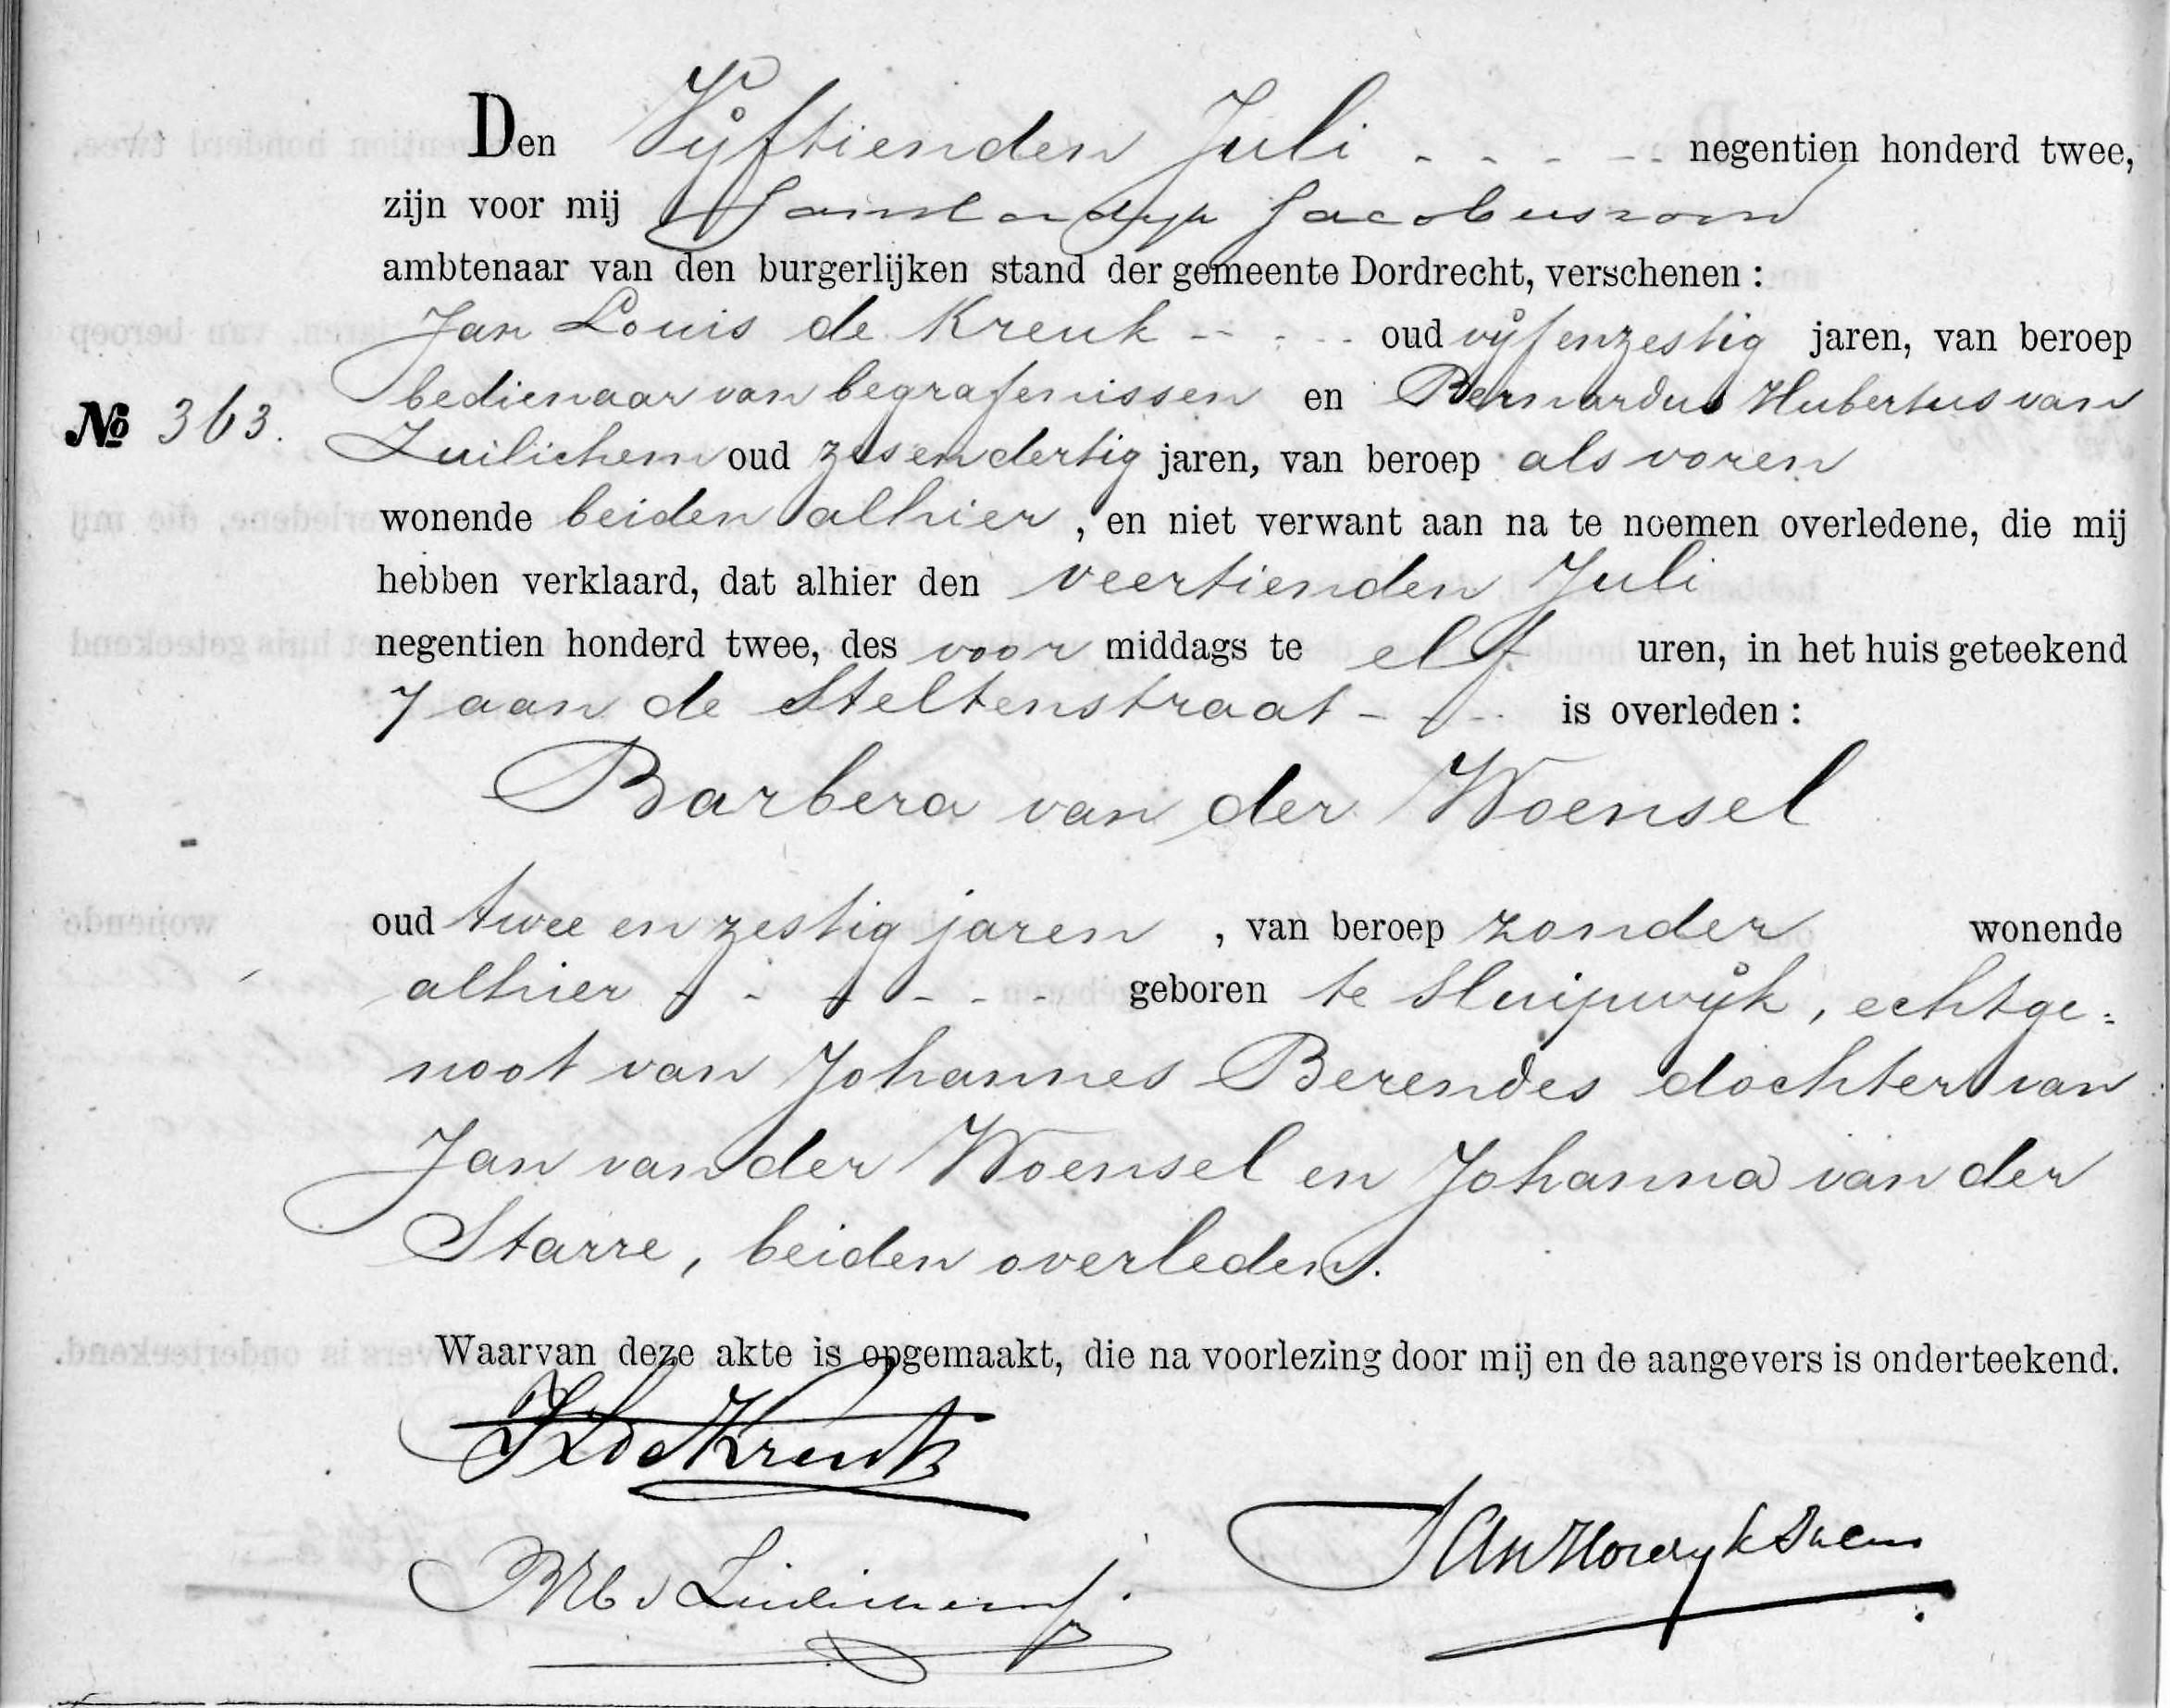 Den Vijftienden Juli - - - - - negentien honderd twee,
zijn voor mij Jacobuszoon
ambtenaar van den burgerlijken stand der gemeente Dordrecht, verschenen :
Jan Louis de Kreuk - - - - oud vijfenzestig jaren, van beroep
bedienaar van begrafenissen en Bernardus Hubertus van
№ 363.
Zuilichem oud zesendertig jaren, van beroep als voren
wonende beiden alhier, en niet verwant aan na te noemen overledene, die mij
hebben verklaard, dat alhier den veertienden Juli
negentien honderd twee, des voor middags te elf uren, in het huis geteekend
7 aan de Steltenstraat - - - is overleden :
Barbera van der Woensel
oud twee en zestig jaren , van beroep zonder wonende
alhier - - - - - - geboren te Sluipwijk, echtge=
noot van Johannes Berendes dochter van
Jan van der Woensel en Johanna van der
Starre, beiden overleden.
Waarvan deze akte is opgemaakt, die na voorlezing door mij en de aangevers is onderteekend.
JL de Kreuk
BH v Zuilichem